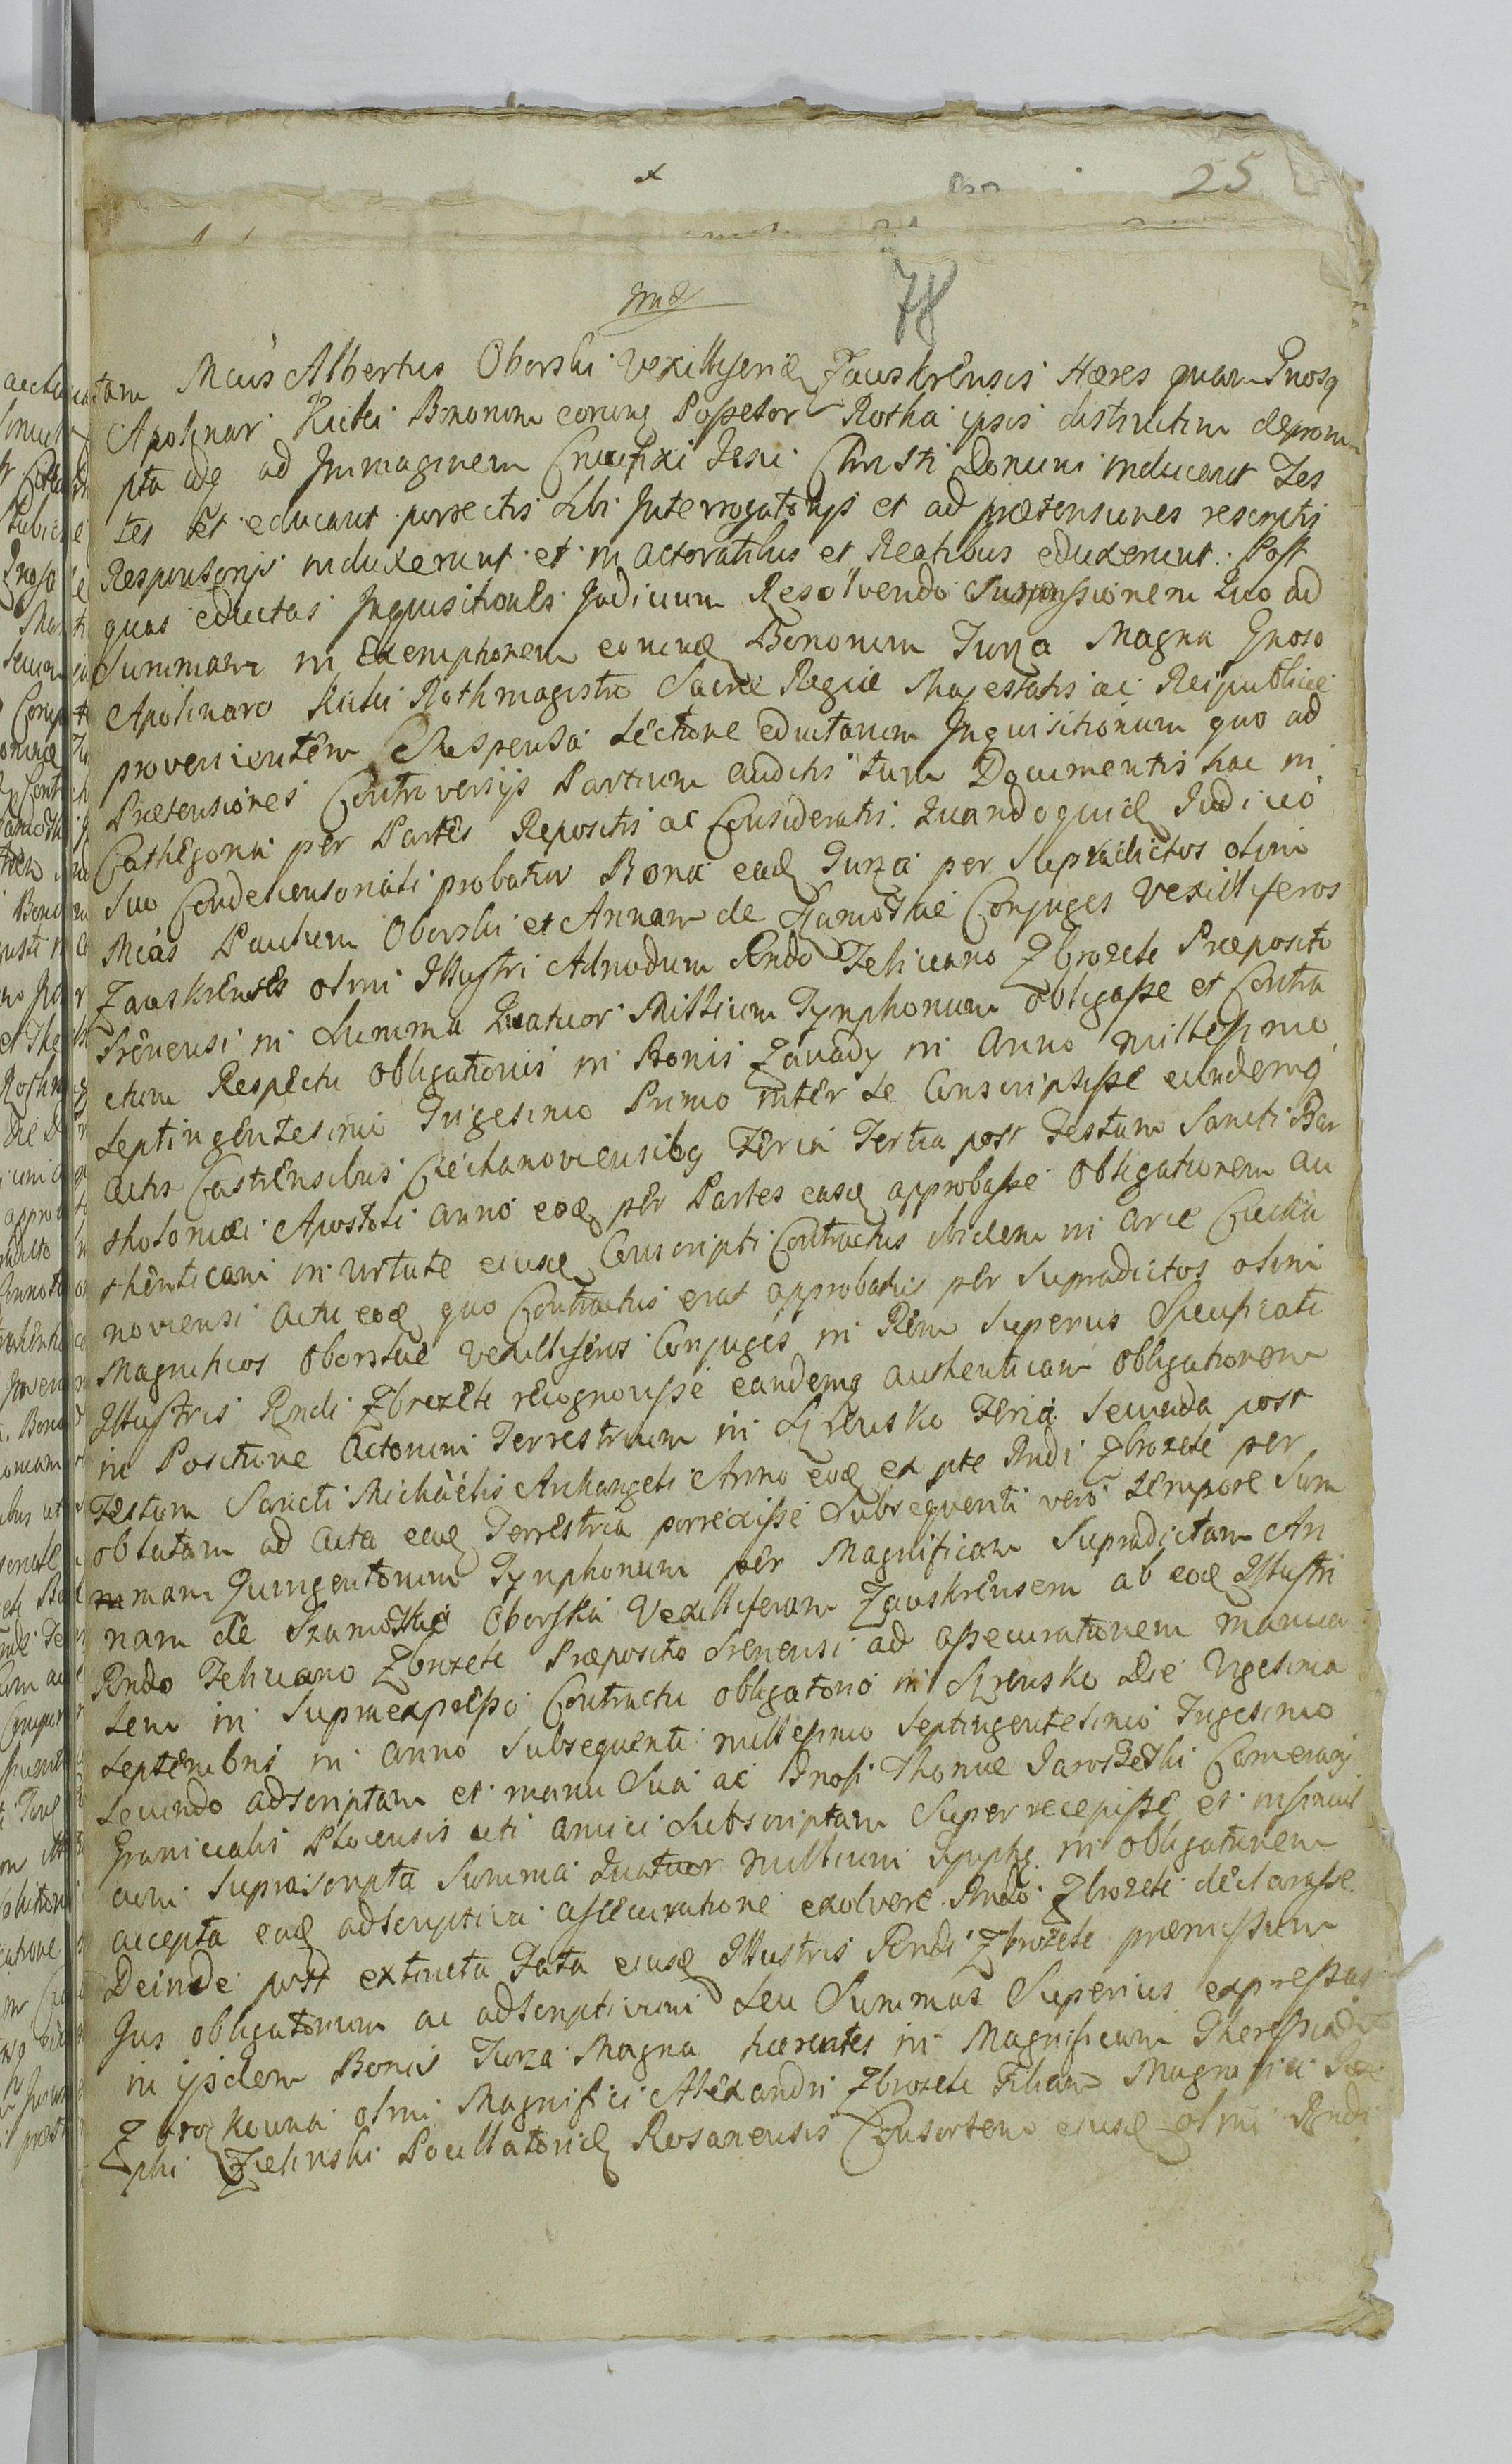 25
78
tam Mcus Albertus Oborski Vexilliferid Zauskrensis Hæres quam Gnosq
Apolinar Kicki Bonorum eorunq Possesor Rotha ipsis distinctim deprom
pta ideq ad Immaginem Crucifixi Jesu Christi Domini inducant Tes
tes et educant porrectis sibi Interrogatorijs et ad prætensiones rescriptis
Responsorijs induxerunt et in actoratibus et Reatibus eduxerunt. Post
quas eductas Inquisitiones Judicium Resolvendo Suspensionem Quo ad
Summam in Exemptionem eorund Bonorum Turza Magna Gnoso
Apolinaro Kicki Rothmagistro Sacræ Regiæ Majestatis ac Reipublicæ
provenientem Suspensa Lectione eductarum Inquisitionum quo ad
Prætensiones Controversijs Partium auditis tum Documentis hac in
Cathegoria per Partes Repositis ac Consideratis. Quandoquid Judicio
Suo Condescensoriali probatur Bona ead Turza per Supradictos olim
Mcos Paulum Oborski et Annam de Szamoskie Conjuges Vexilliferos
Zauskrenses olim Illustri Admodum Rndo Feliciano Zbrozek Præposito
Srenensi in Summa Quatuor Millium Tynphonum obligasse et Contra
ctum Respectu obligationis in Bonis Zavady in Anno millesimo
Septingentesimo Trigesimo Primo inter se Conscripsisse eundemq
Actis Castrensibus Ciechanoviensibq Feria Tertia post Festum Sancti Bar
tholomæi Apostoli anno eod per Partes easd approbasse obligationem au
thenticam in virtute eiusd Conscripti Contractus ibidem in arce Ciecha
noviensi actu eod quo Contractus erat approbatus per Supradictos olim
Magnificos Oborskie Vexilliferos Conjuges in Rem Superius Specificati
Illustris Rndi Zbrozek recognovisse eandemq authenticam obligationem
in Positione Actorum Terrestrium in Szrensko Feria Secunda post
Festum Sancti Michaëlis Archangeli Anno eod ex pte Rndi Zbrozek per
oblatam ad Acta ead Terrestria porrexisse Subsequenti vero tempore Sum
mam Quingentorum Tynphonum per Magnificam Supradictam An
nam de Szamoskie Oborska Vexilliferam Zauskrensem ab eod Illustri
Rndo Feliciano Zbrozek Præposito Srenensi ad assecurationem manua
lem in Supraexpresso Contractu obligatorio in Szrensko Die Vigesima
Septembris in anno Subsequenti millesimo Septingentesimo Trigesimo
Secundo adscriptam et manu Sua ac Gnosi Thomæ Jaroszeski Camerarij
Granicialis Plocensis uti amici Subscriptam Superrecepisse et insimul
cum Suprascripta Summa Quatuor millium Tynphq in obligationem
accepta ead adscriptitia assecuratione exolvere Rndo Zbrozek declarasse.
Deinde post extincta Fata eiusd Illustris Rndi Zbrozek præmissum
Jus obligatorium ac adscriptitium seu Summas Superius expressas
in ijsdem Bonis Turza Magna hærentes in Magnificam Theressiad
Zbrozkowna olim Magnifici Alexandri Zbrozek Filiam Magnifici Jose
phi Zielinski Pocillatorid Rosanensis Consortem eiusd olim Rndi